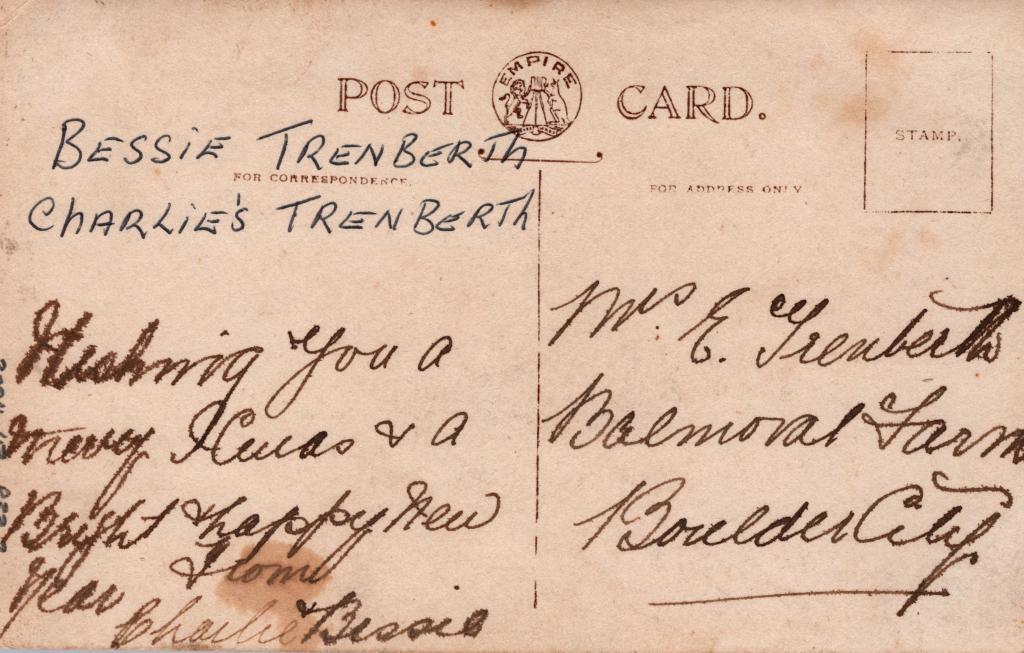 POST EMPIRE CARD.
STAMP.
BESSIE TRENBERTH
FOR CORRESPONDENCE.
FOR ADDRESS ONLY
CHARLIE'S TRENBERTH
Wishing You a
Merry Xmas & a
Bright & happy New
Year From
Charlie & Bessie
Mrs E. Trenberth
Balmoral Farm
Boulder City